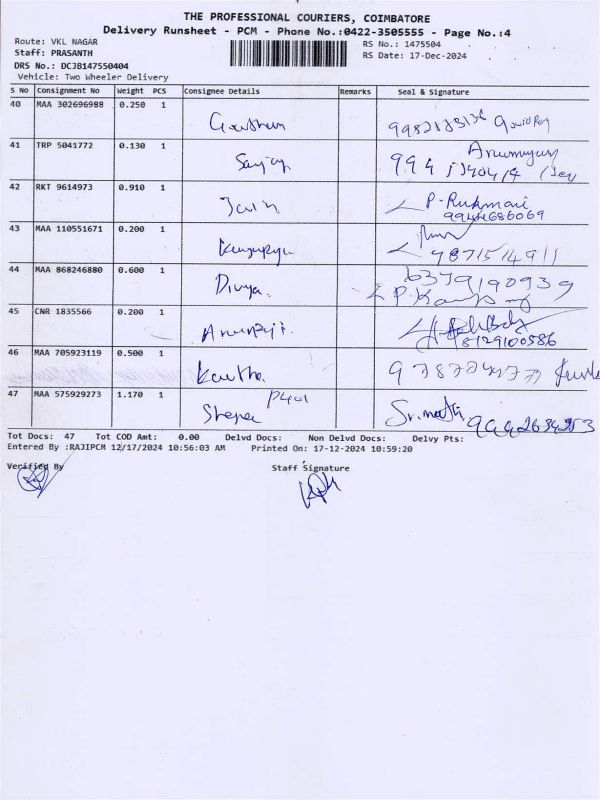 THE PROFESSIONAL COURIERS, COIMBATORE
Delivery Runsheet - PCM - Phone No.:0422-3505555 - Page No.:4
Route: VKL NAGAR
RS No.: 1475504
Staff: PRASANTH
RS Date: 17-Dec-2024
DRS No.: DCJB147550404
Vehicle: Two Wheeler Delivery
S No Consignment No Weight PCS Consignee Details Remarks Seal & Signature
40 MAA 302696988 0.250 1
Gowtham
41 TRP 5041772 0.130 1
Sanjay
Arumugam
42 RKT 9614973 0.910 1
P. Rukmani
9944686069
43 MAA 110551671 0.200 1
9871514911
44 MAA 868246880 0.600 1
Divya.
6379190939
45 CNR 1835566 0.200 1
8129100586
46 MAA 705923119 0.500 1
Kavitha
47 MAA 575929273 1.170 1
P401
Srimathi
Tot Docs: 47 Tot COD Amt: 0.00 Delvd Docs: Non Delvd Docs: Delvy Pts:
Entered By :RAJIPCM 12/17/2024 10:56:03 AM Printed On: 17-12-2024 10:59:20
Verified By Staff Signature